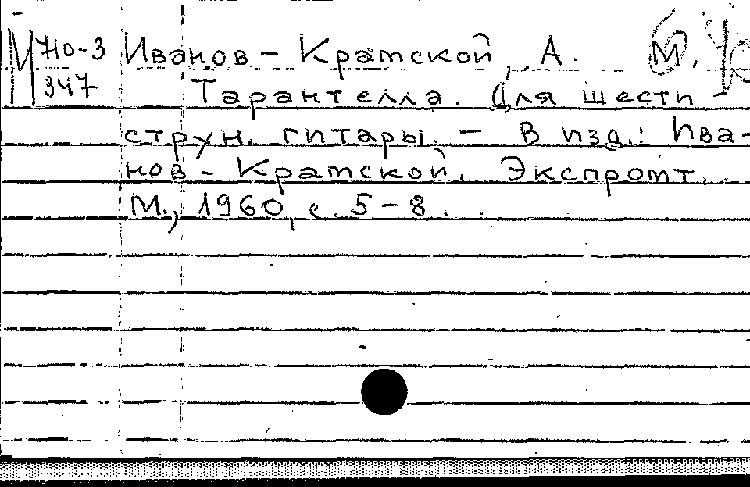 М 710-3 Иванов-Крамской, А. М.
347 Тарантелла. Для шести-
струн. гитары. - В изд.: Ива-
нов-Крамской. Экспромт.
М., 1960, с. 5-8.